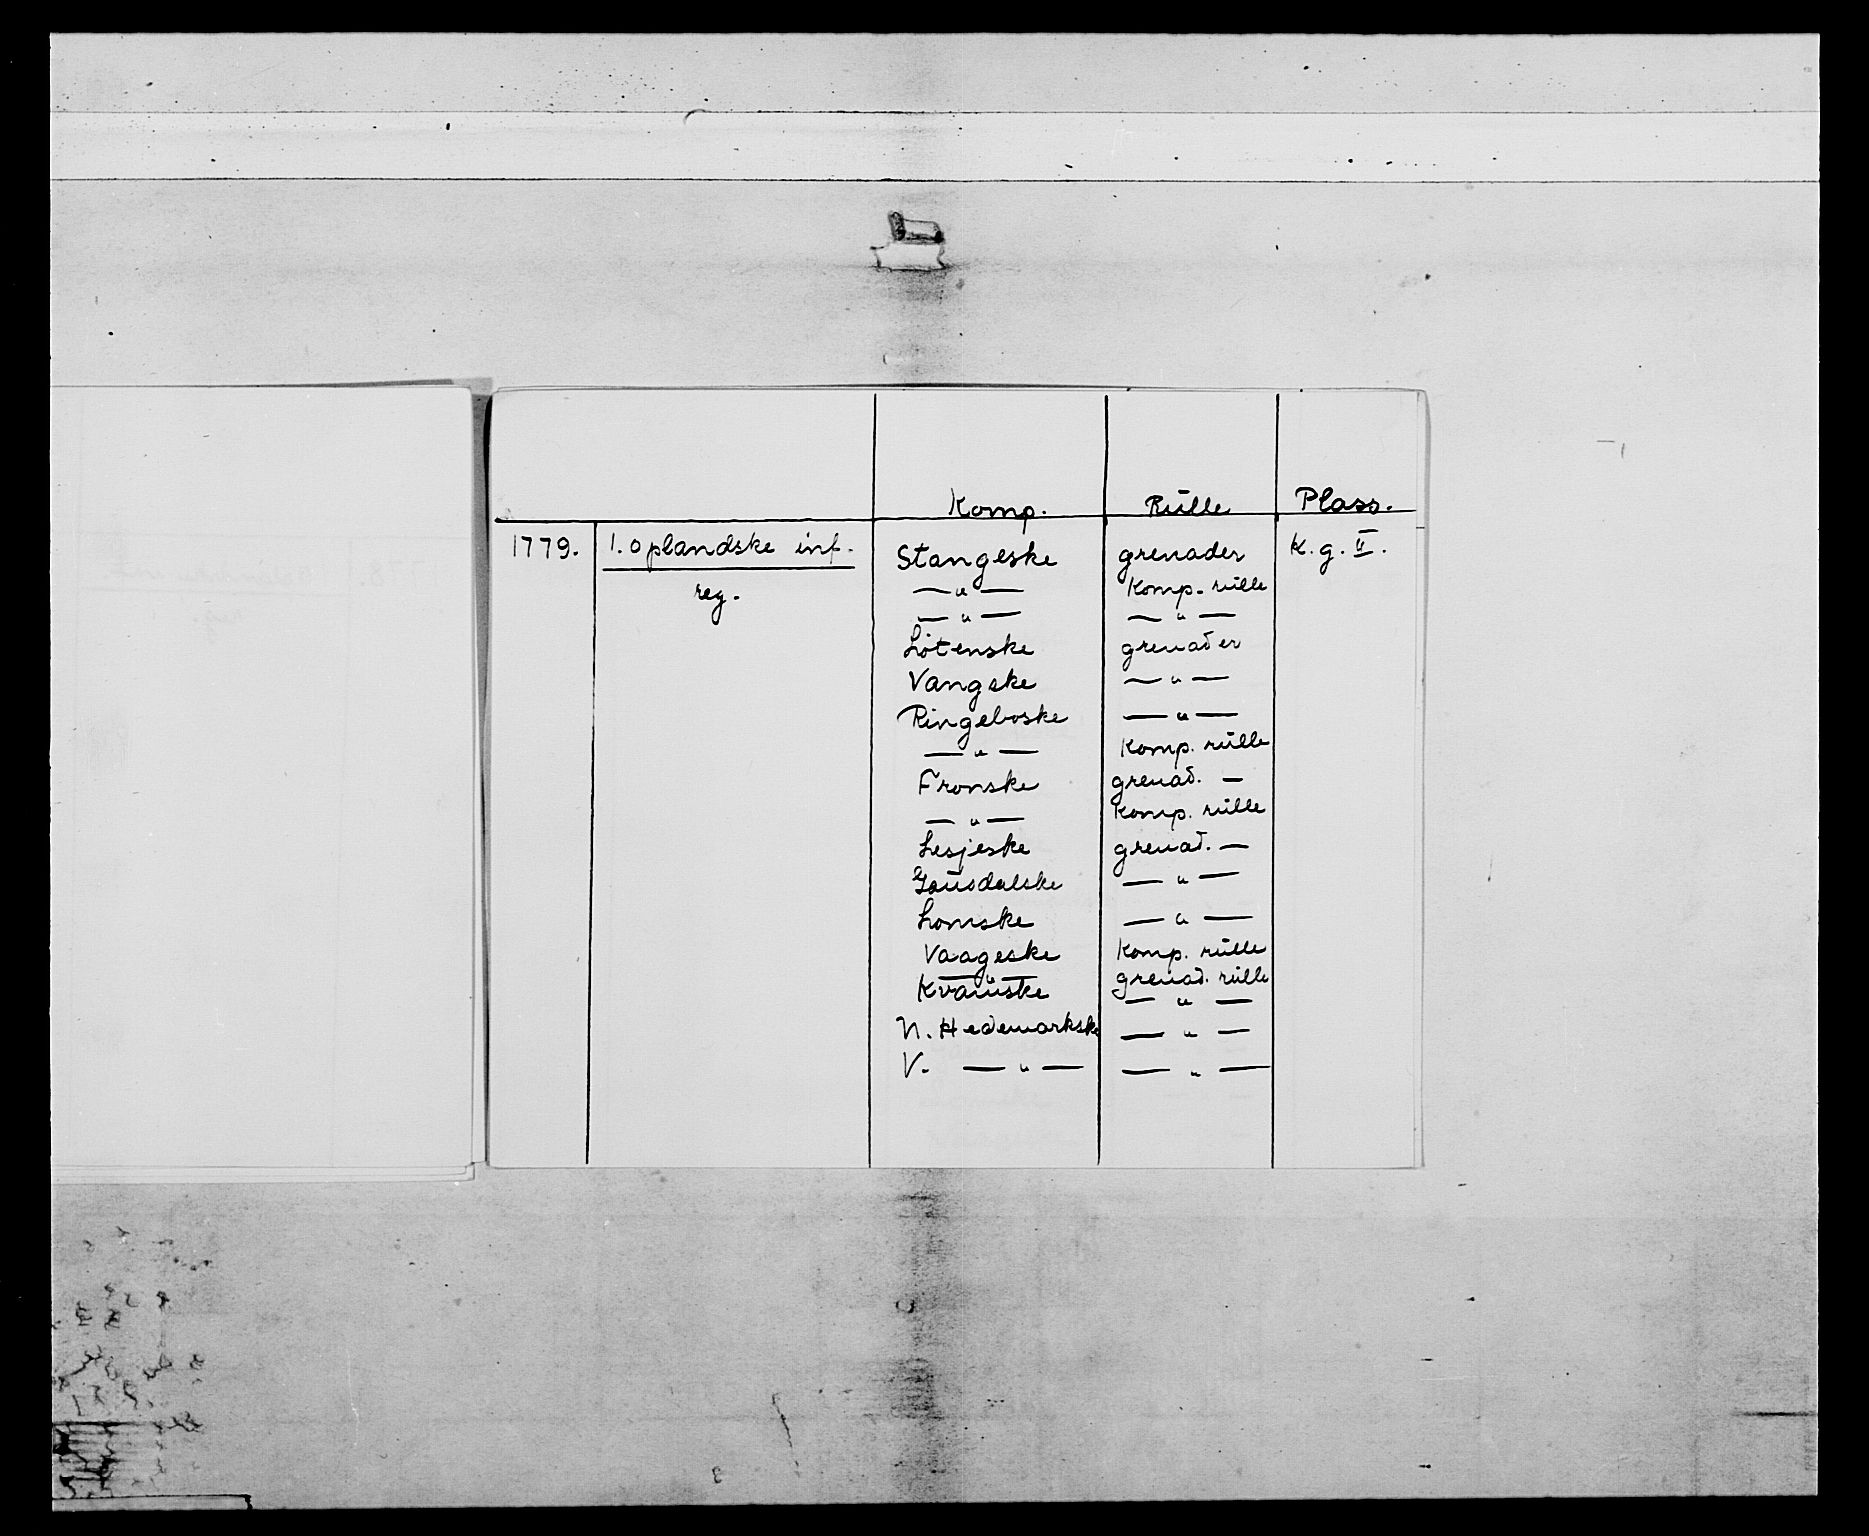 Komp. Rülle Plass.
1779. 1. oplandske inf. Stangeske grenader K. g. II.
reg. — " — Komp. rülle
— " — — " —
Løtenske grenader
Vangske — " —
Ringeboske — " —
— " — Komp. rülle
Fronske grenad. —
— " — Komp. rülle
Lesjeske grenad. —
Gausdalske — " —
Lomske — " —
Vaageske Komp. rülle
— " — grenad. rülle
Kvamske — " —
N. Hedemarkske — " —
V. — " — — " —